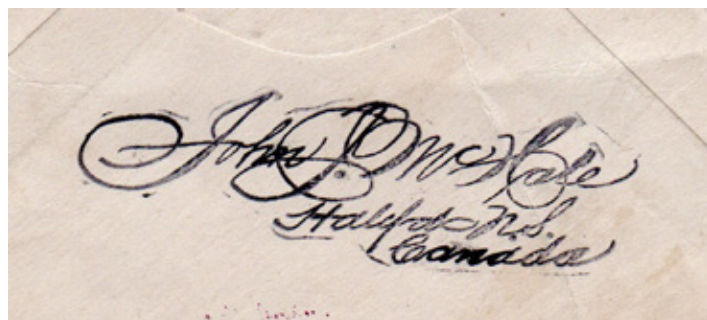 John P. McHale
Halifax N.S.
Canada